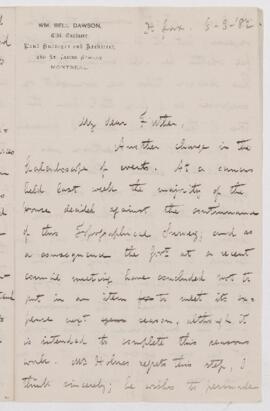 WM. BELL DAWSON,
Civil Engineer
Land Surveyor and Architect,
MONTREAL.
H'fax. 5-3-'82
My dear Father,
Another change in the
kaleidoscope of events. At a caucus
held last week the majority of the
house decided against the continuance
of this Topographical Survey; and as
a consequence the Govt at a recent
council meeting have concluded not to
put in an item to meet its ex-
pense next season, although it
is intended to complete this seasons
work. Mr Holmes regrets this step, I
think sincerely; he wishes to persuade